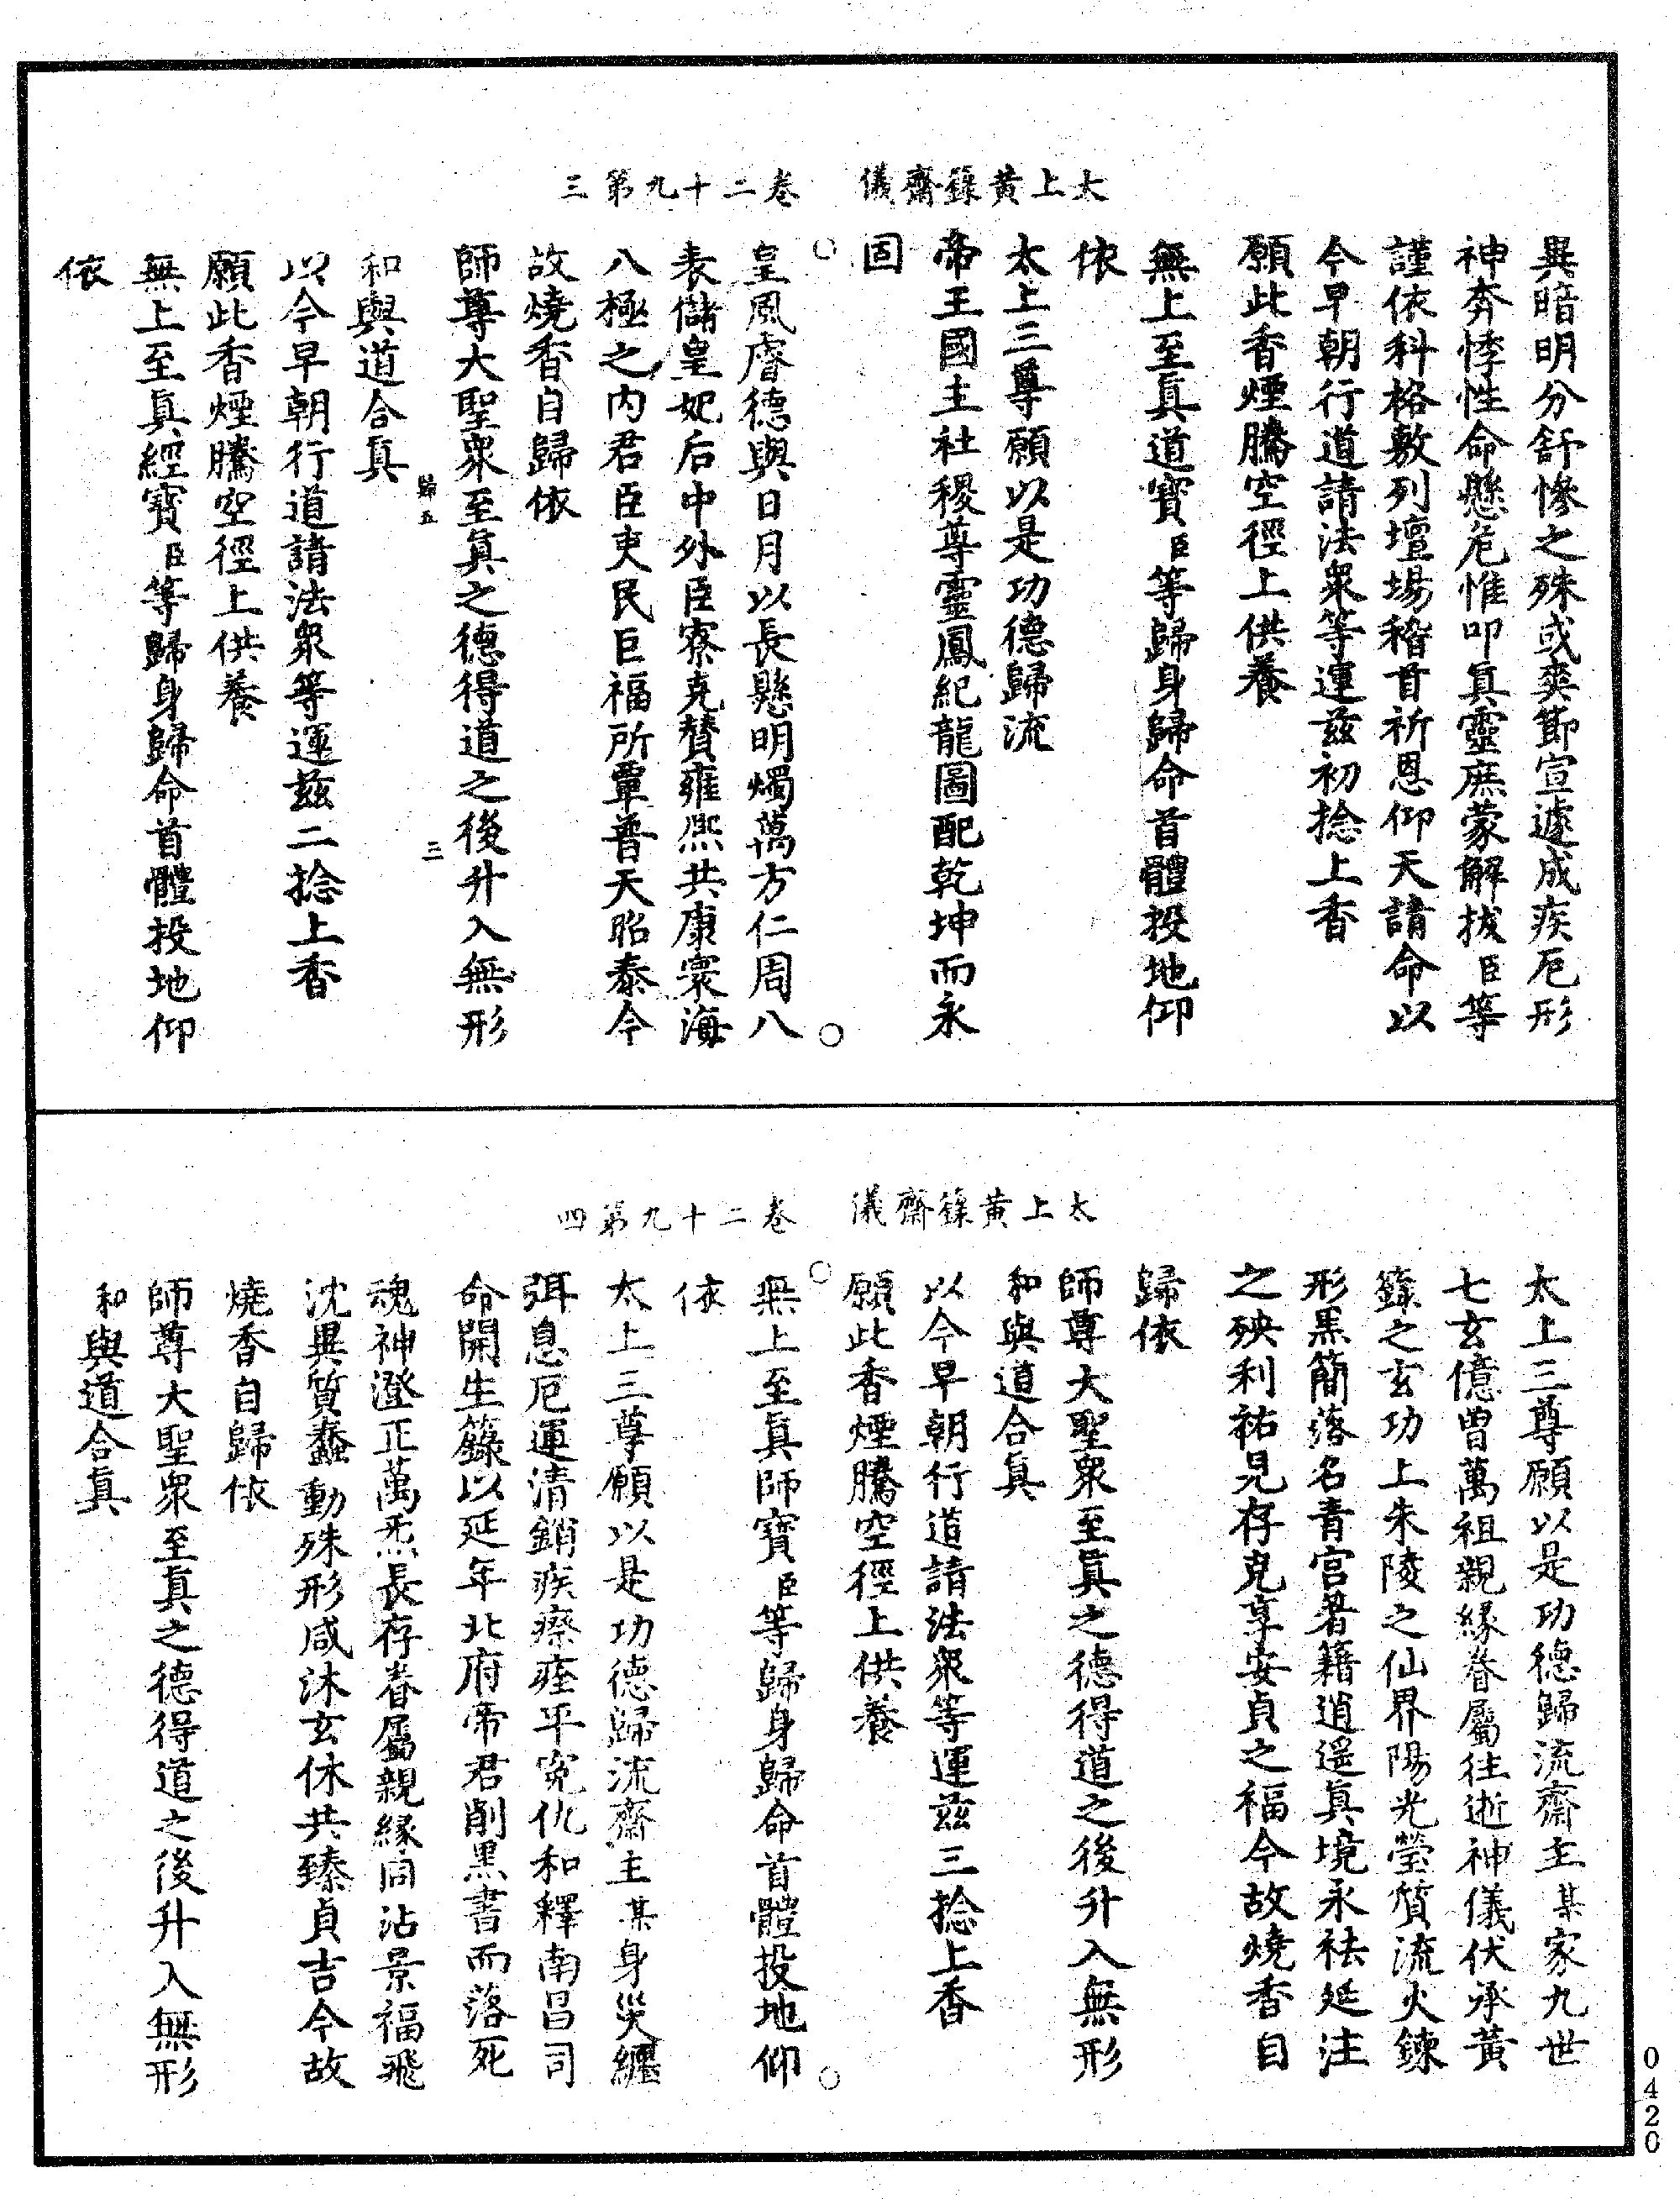 太上黃籙齋儀　卷二十九第三
異暗明分舒慘之殊或爽節宣遽成疾厄形
神奔悸性命懸危惟叩眞靈庶蒙解拔臣等
謹依科格敷列壇場稽首祈恩仰天請命以
今早朝行道請法衆等運茲初捻上香
願此香煙騰空徑上供養
無上至眞道寶臣等歸身歸命首體投地仰
依
太上三尊願以是功德歸流
帝王國主社稷尊靈鳳紀龍圖配乾坤而永
固
皇風睿德與日月以長懸明燭萬方仁周八
表儲皇妃后中外臣寮克贊雍熙共康寰海
八極之內君臣吏民巨福所覃普天昭泰今
故燒香自歸依
師尊大聖衆至眞之德得道之後升入無形
歸五　三
和與道合眞
以今早朝行道諸法衆等運茲二捻上香
願此香煙騰空徑上供養
無上至眞經寶臣等歸身歸命首體投地仰
依
太上黃籙齋儀　卷二十九第四
太上三尊願以是功德歸流齋主某家九世
七玄億曾萬祖親緣眷屬往逝神儀伏承黃
籙之玄功上朱陵之仙界陽光瑩質流火鍊
形黑簡落名青宮著籍逍遙眞境永袪延注
之殃利祐見存克享安貞之福今故燒香自
歸依
師尊大聖衆至眞之德得道之後升入無形
和與道合眞
以今早朝行道請法衆等運茲三捻上香
願此香煙騰空徑上供養
無上至眞師寶臣等歸身歸命首體投地仰
依
太上三尊願以是功德歸流齋主某身災纏
弭息厄運清銷疾瘵痊平寃仇和釋南昌司
命開生籙以延年北府帝君削黑書而落死
魂神澄正萬炁長存眷屬親緣同沾景福飛
沈異質蠢動殊形咸沐玄休共臻貞吉今故
燒香自歸依
師尊大聖衆至眞之德得道之後升入無形
和與道合眞
0420